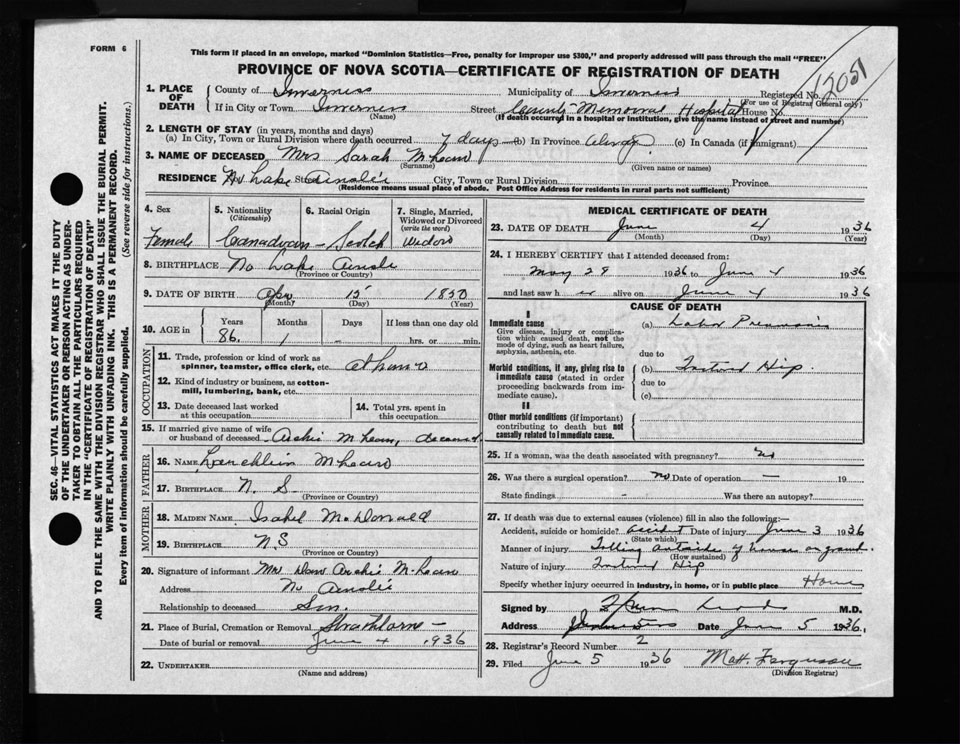 FORM 6
This form if placed in an envelope, marked "Dominion Statistics—Free, penalty for improper use $300," and properly addressed will pass through the mail "FREE"
PROVINCE OF NOVA SCOTIA—CERTIFICATE OF REGISTRATION OF DEATH
SEC. 46—VITAL STATISTICS ACT MAKES IT THE DUTY
OF THE UNDERTAKER OR PERSON ACTING AS UNDER-
TAKER TO OBTAIN ALL THE PARTICULARS REQUIRED
IN THE "CERTIFICATE OF REGISTRATION OF DEATH"
AND TO FILE THE SAME WITH THE DIVISION REGISTRAR WHO SHALL ISSUE THE BURIAL PERMIT.
WRITE PLAINLY WITH UNFADING INK. THIS IS A PERMANENT RECORD.
Every item of information should be carefully supplied. (See reverse side for instructions.)
1. PLACE OF DEATH
County of Inverness Municipality of Inverness Registered No. 12051
(For use of Registrar General only)
If in City or Town Inverness Street County Memorial Hospital House No.
(Name) (If death occurred in a hospital or institution, give the name instead of street and number)
2. LENGTH OF STAY (in years, months and days)
(a) In City, Town or Rural Division where death occurred 7 days (b) In Province Always (c) In Canada (if immigrant)
3. NAME OF DECEASED Mrs Sarah McLean
(Surname) (Given name or names)
RESIDENCE No Lake Ainslie Street City, Town or Rural Division Province
(Residence means usual place of abode. Post Office Address for residents in rural parts not sufficient)
4. Sex Female
5. Nationality (Citizenship) Canadian
6. Racial Origin Scotch
7. Single, Married, Widowed or Divorced (write the word) Widow
8. BIRTHPLACE No Lake Ainslie
(Province or Country)
9. DATE OF BIRTH Apr 15 1850
(Month) (Day) (Year)
10. AGE in Years 86 Months 1 Days - If less than one day old hrs. or min.
OCCUPATION
11. Trade, profession or kind of work as spinner, teamster, office clerk, etc. at home
12. Kind of industry or business, as cotton-mill, lumbering, bank, etc.
13. Date deceased last worked at this occupation
14. Total yrs. spent in this occupation
15. If married give name of wife or husband of deceased Archie McLean, deceased
FATHER
16. NAME Lauchlin McLean
17. BIRTHPLACE N. S.
(Province or Country)
MOTHER
18. MAIDEN NAME Isabel McDonald
19. BIRTHPLACE N.S
(Province or Country)
20. Signature of informant Mr Dan Archie McLean
Address No Ainslie
Relationship to deceased Son.
21. Place of Burial, Cremation or Removal Strathlorne
Date of burial or removal June 4 1936
22. UNDERTAKER
(Name and address)
MEDICAL CERTIFICATE OF DEATH
23. DATE OF DEATH June 4 1936
(Month) (Day) (Year)
24. I HEREBY CERTIFY that I attended deceased from:
May 29 1936 to June 4 1936
and last saw h er alive on June 4 1936
CAUSE OF DEATH
I
Immediate cause
Give disease, injury or complication which caused death, not the mode of dying, such as heart failure, asphyxia, asthenia, etc.
(a) Lobar Pneumonia
due to
Morbid conditions, if any, giving rise to immediate cause (stated in order proceeding backwards from immediate cause).
(b) Fractured Hip.
due to
(c)
II
Other morbid conditions (if important) contributing to death but not causally related to immediate cause.
25. If a woman, was the death associated with pregnancy? No
26. Was there a surgical operation? No Date of operation — 19
State findings - Was there an autopsy?
27. If death was due to external causes (violence) fill in also the following:—
Accident, suicide or homicide? accident Date of injury June 3 1936
(State which)
Manner of injury Falling outside of house on ground.
(How sustained)
Nature of injury Fractured Hip
Specify whether injury occurred in industry, in home, or in public place Home
Signed by M.D.
Address Inverness Date June 5 1936.
28. Registrar's Record Number 2
29. Filed June 5 1936 Matt. Ferguson
(Division Registrar)